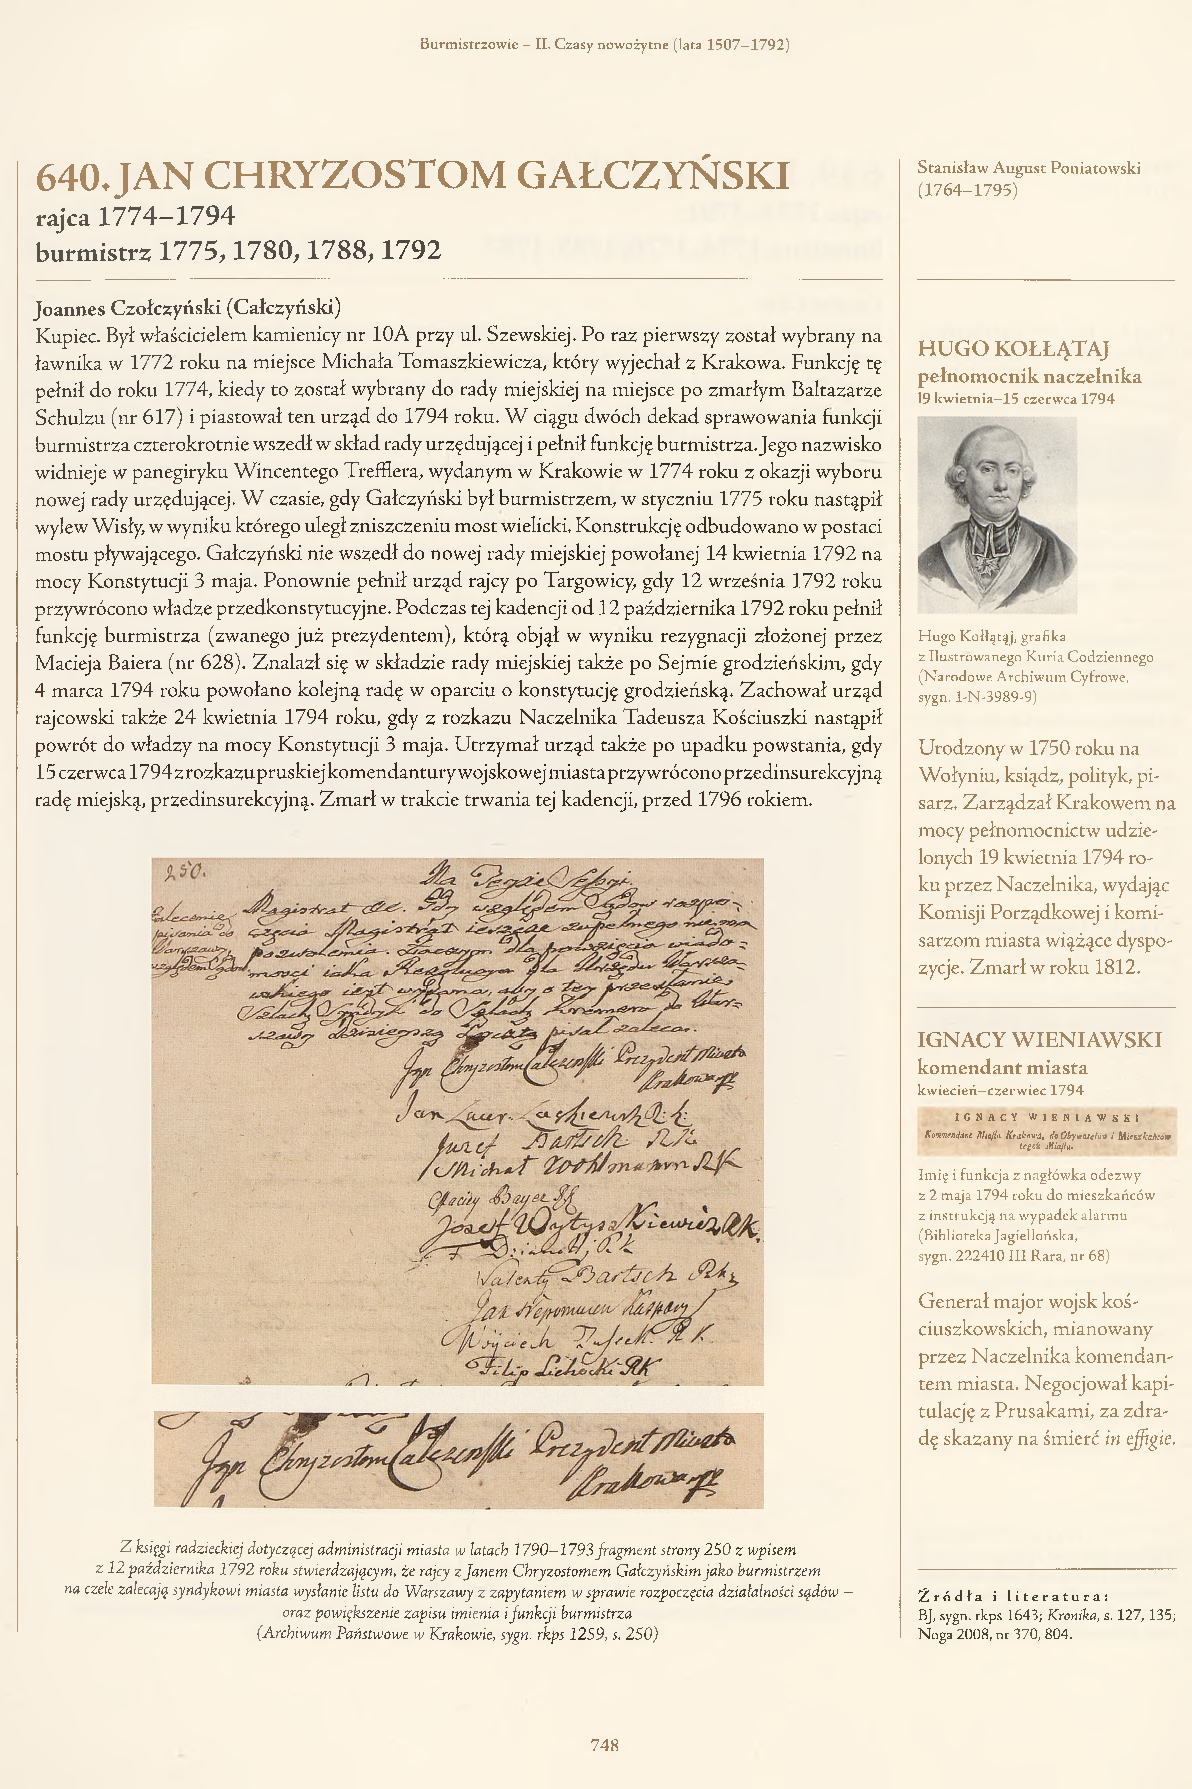 Burmistrzowie – II. Czasy nowożytne (lata 1507–1792)
640. JAN CHRYZOSTOM GAŁCZYŃSKI
rajca 1774–1794
burmistrz 1775, 1780, 1788, 1792
Joannes Czołczyński (Całczyński)
Kupiec. Był właścicielem kamienicy nr 10A przy ul. Szewskiej. Po raz pierwszy został wybrany na
ławnika w 1772 roku na miejsce Michała Tomaszkiewicza, który wyjechał z Krakowa. Funkcję tę
pełnił do roku 1774, kiedy to został wybrany do rady miejskiej na miejsce po zmarłym Baltazarze
Schulzu (nr 617) i piastował ten urząd do 1794 roku. W ciągu dwóch dekad sprawowania funkcji
burmistrza czterokrotnie wszedł w skład rady urzędującej i pełnił funkcję burmistrza. Jego nazwisko
widnieje w panegiryku Wincentego Trefflera, wydanym w Krakowie w 1774 roku z okazji wyboru
nowej rady urzędującej. W czasie, gdy Gałczyński był burmistrzem, w styczniu 1775 roku nastąpił
wylew Wisły, w wyniku którego uległ zniszczeniu most wielicki. Konstrukcję odbudowano w postaci
mostu pływającego. Gałczyński nie wszedł do nowej rady miejskiej powołanej 14 kwietnia 1792 na
mocy Konstytucji 3 maja. Ponownie pełnił urząd rajcy po Targowicy, gdy 12 września 1792 roku
przywrócono władze przedkonstytucyjne. Podczas tej kadencji od 12 października 1792 roku pełnił
funkcję burmistrza (zwanego już prezydentem), którą objął w wyniku rezygnacji złożonej przez
Macieja Baiera (nr 628). Znalazł się w składzie rady miejskiej także po Sejmie grodzieńskim, gdy
4 marca 1794 roku powołano kolejną radę w oparciu o konstytucję grodzieńską. Zachował urząd
rajcowski także 24 kwietnia 1794 roku, gdy z rozkazu Naczelnika Tadeusza Kościuszki nastąpił
powrót do władzy na mocy Konstytucji 3 maja. Utrzymał urząd także po upadku powstania, gdy
15 czerwca 1794 z rozkazu pruskiej komendantury wojskowej miasta przywrócono przedinsurekcyjną
radę miejską, przedinsurekcyjną. Zmarł w trakcie trwania tej kadencji, przed 1796 rokiem.
250.
Na Tegoż Sessyi
Magistrat
Magistrat ieszcze zupełnego niema
pozwolenia
Jan Chryzostom Całczynski Prezydent Miasta
Krakowa
Józef Bartsch RK
Michał Wohlmann RK
Maciey Bayer
Józef Wytyszkiewicz RK.
Walenty Bartsch
Jan Nepomucen
Woyciech
Filip Lichocki RK
Jan Chryzostom Całczynski Prezydent Miasta
Krakowa
Z księgi radzieckiej dotyczącej administracji miasta w latach 1790–1793 fragment strony 250 z wpisem
z 12 października 1792 roku stwierdzającym, że rajcy z Janem Chryzostomem Gałczyńskim jako burmistrzem
na czele zalecają syndykowi miasta wysłanie listu do Warszawy z zapytaniem w sprawie rozpoczęcia działalności sądów –
oraz powiększenie zapisu imienia i funkcji burmistrza
(Archiwum Państwowe w Krakowie, sygn. rkps 1259, s. 250)
Stanisław August Poniatowski
(1764–1795)
HUGO KOŁŁĄTAJ
pełnomocnik naczelnika
19 kwietnia–15 czerwca 1794
Hugo Kołłątaj, grafika
z Ilustrowanego Kuria Codziennego
(Narodowe Archiwum Cyfrowe,
sygn. 1-N-3989-9)
Urodzony w 1750 roku na
Wołyniu, ksiądz, polityk, pi-
sarz. Zarządzał Krakowem na
mocy pełnomocnictw udzie-
lonych 19 kwietnia 1794 ro-
ku przez Naczelnika, wydając
Komisji Porządkowej i komi-
sarzom miasta wiążące dyspo-
zycje. Zmarł w roku 1812.
IGNACY WIENIAWSKI
komendant miasta
kwiecień–czerwiec 1794
IGNACY WIENIAWSKI
Kommendant Miasta Krakowa, do Obywatelów i Mieszkańców
tegoż Miasta.
Imię i funkcja z nagłówka odezwy
z 2 maja 1794 roku do mieszkańców
z instrukcją na wypadek alarmu
(Biblioteka Jagiellońska,
sygn. 222410 III Rara, nr 68)
Generał major wojsk koś-
ciuszkowskich, mianowany
przez Naczelnika komendan-
tem miasta. Negocjował kapi-
tulację z Prusakami, za zdra-
dę skazany na śmierć in effigie.
Źródła i literatura:
BJ, sygn. rkps 1643; Kronika, s. 127, 135;
Noga 2008, nr 370, 804.
748